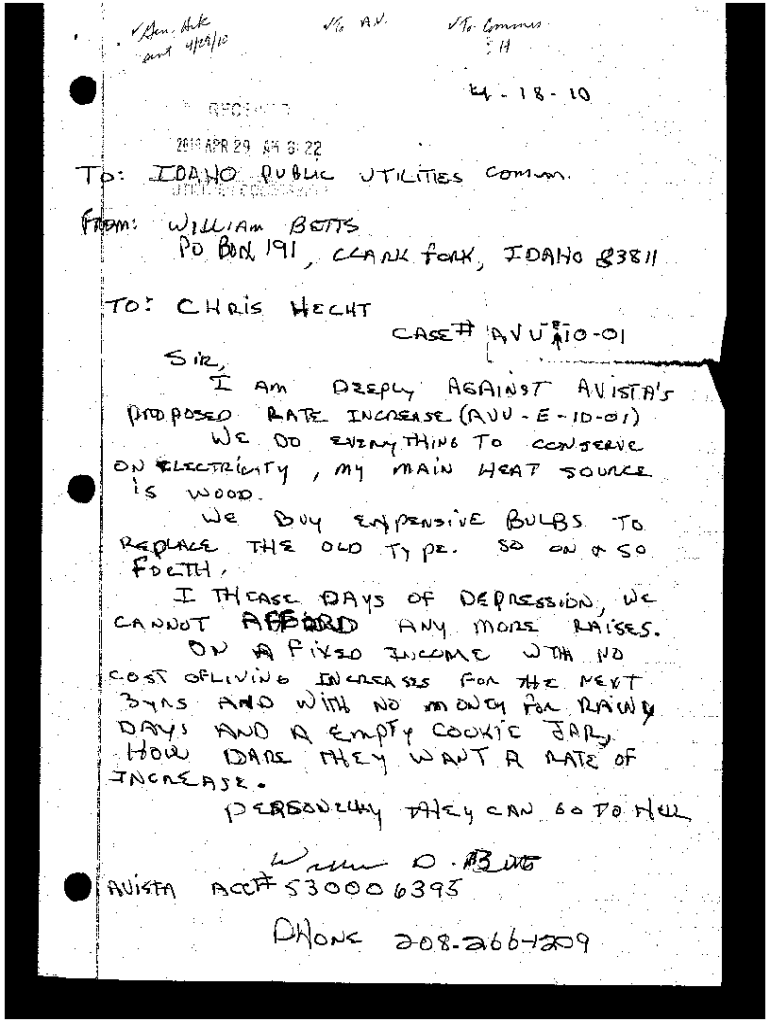 ✓Gen. Ack sent 4/29/10
✓To A.V.
✓To Commrs. : H
4-18-10
RECEIVED
2010 APR 29 AM 8:22
TO: IDAHO PUBLIC UTILITIES Comm.
FROM: WILLIAM BETTS
PO BOX 191, CLARK FORK, IDAHO 83811
TO: CHRIS HECHT
CASE# AVU-E-10-01
SIR,
I AM DEEPLY AGAINST AVISTA'S
PROPOSED RATE INCREASE (AVU-E-10-01)
WE DO EVERYTHING TO CONSERVE
ON ELECTRICITY, MY MAIN HEAT SOURCE
IS WOOD.
WE BUY EXPENSIVE BULBS TO
REPLACE THE OLD TYPE. SO ON & SO
FORTH.
I THEASE DAYS OF DEPRESSION, WE
CANNOT AFFORD ANY MORE RAISES.
ON A FIXED INCOME WTH NO
COST OF LIVING INCREASES FOR THE NEXT
3 YRS AND WITH NO MONEY FOR RAINY
DAYS AND A EMPTY COOKIE JAR,
HOW DARE THEY WANT A RATE OF
INCREASE.
PERSONELLY THEY CAN GO TO HELL
William D. Betts
AVISTA ACCT# 530006395
PHONE 208-266-1209